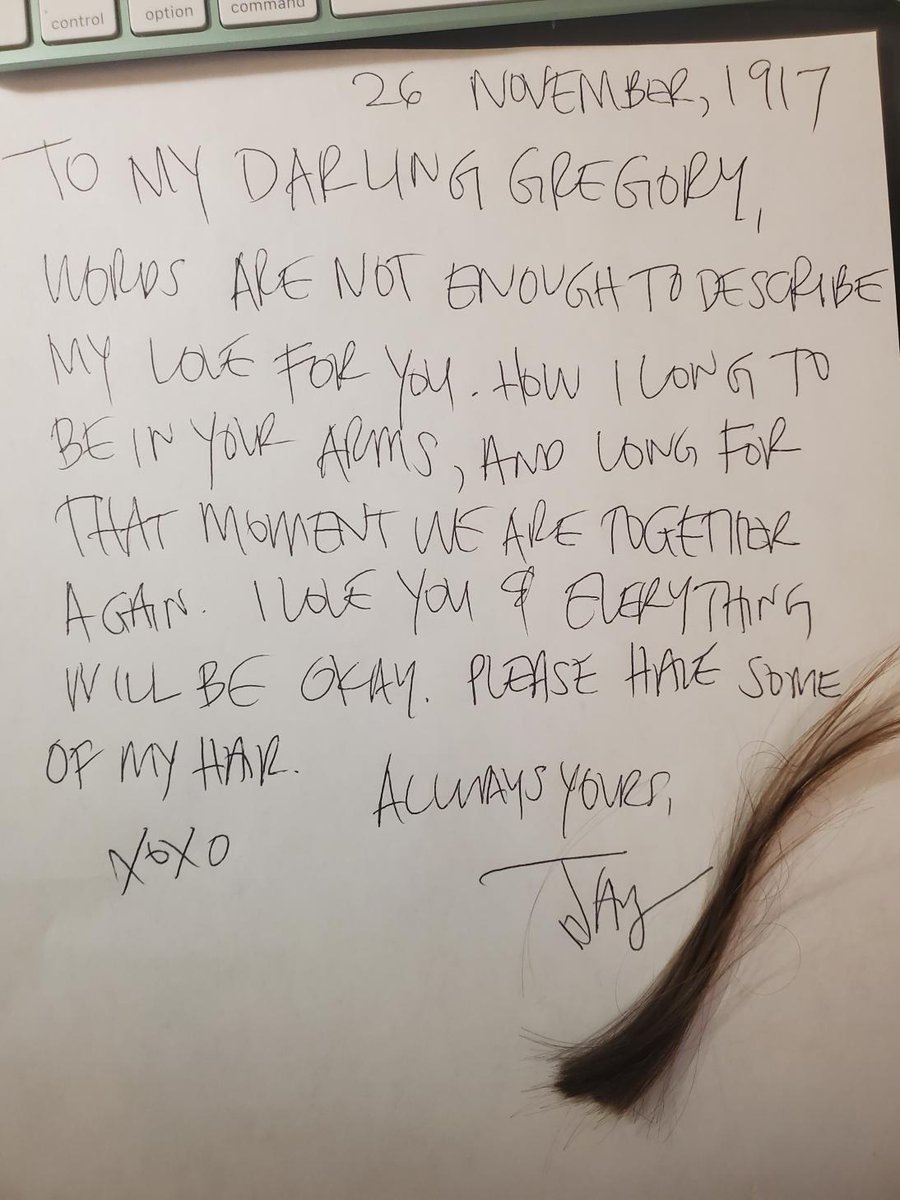 control option command
26 NOVEMBER, 1917
TO MY DARLING GREGORY,
WORDS ARE NOT ENOUGH TO DESCRIBE
MY LOVE FOR YOU. HOW I LONG TO
BE IN YOUR ARMS, AND LONG FOR
THAT MOMENT WE ARE TOGETHER
AGAIN. I LOVE YOU & EVERYTHING
WILL BE OKAY. PLEASE HAVE SOME
OF MY HAIR.
ALWAYS YOURS,
XOXO
JAY